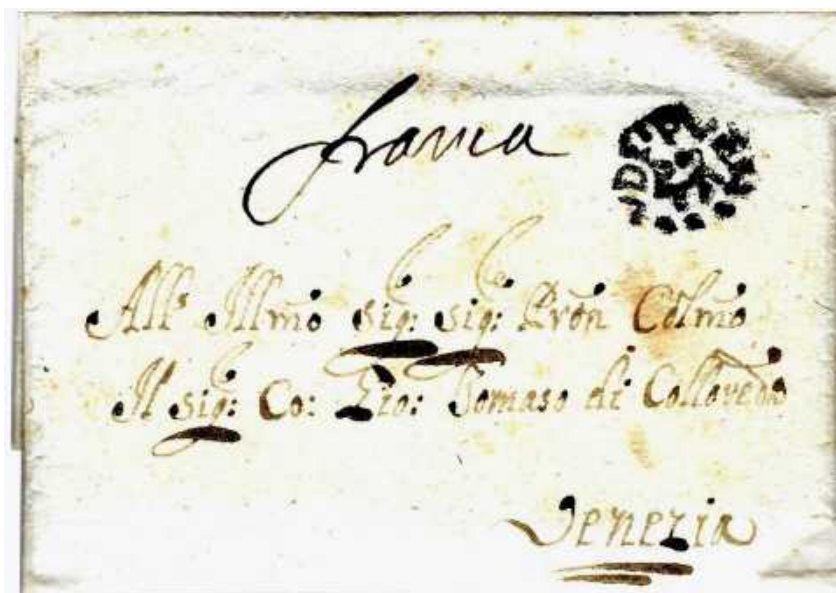 franca
All' Illmo sig: sig: Pron Colmo
Il sig: Co: Gio: Tomaso di Colloredo
Venezia